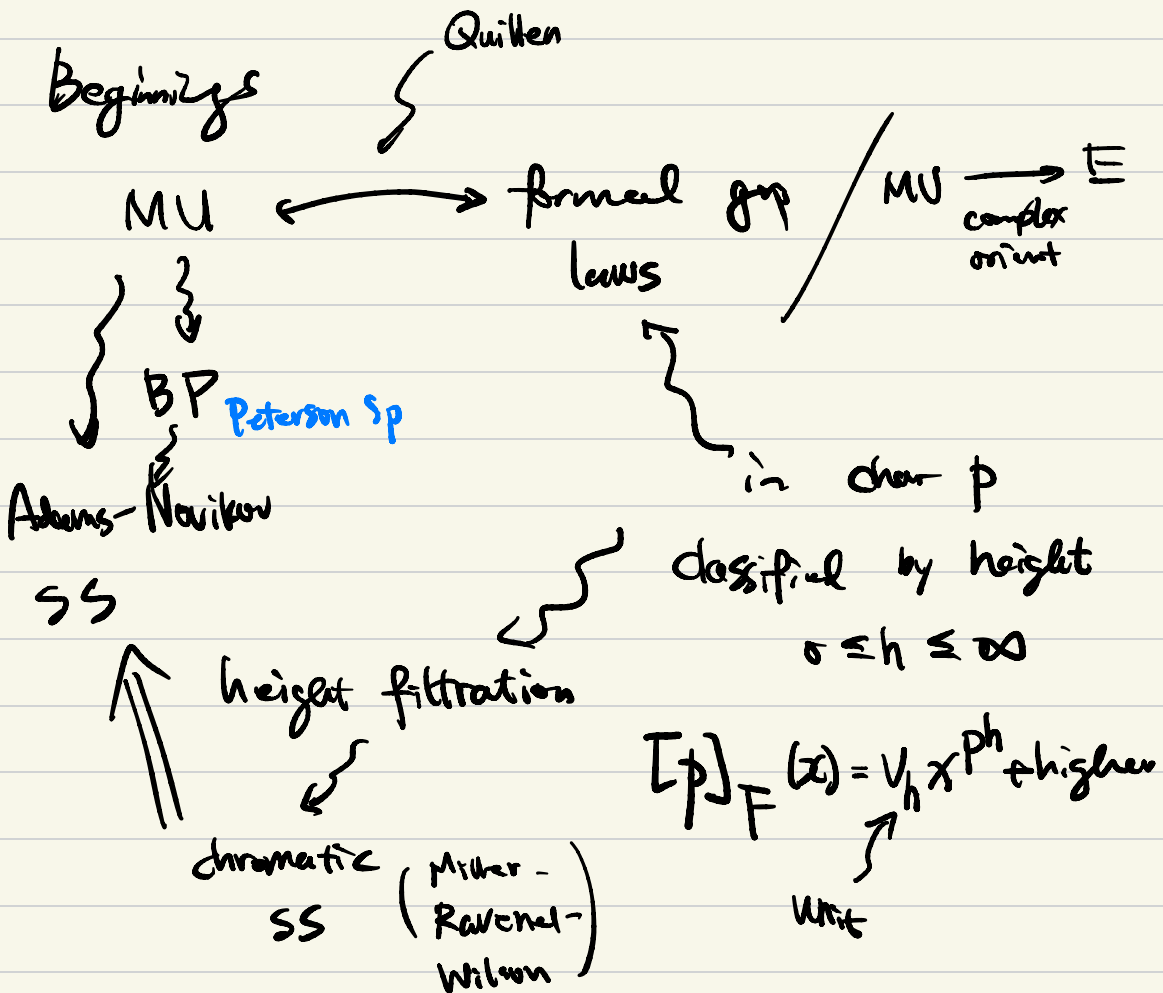 Quillen
Beginnings
MU ⟷ formal grp
laws
MU ⟶ E
complex
orient
BP
Peterson Sp
Adams-Novikov
SS
in char p
classified by height
0 ≤ h ≤ ∞
height filtration
[p]_F (x) = V_h x^{p^h} + higher
unit
chromatic
SS
(Miller-
Ravenel-
Wilson)